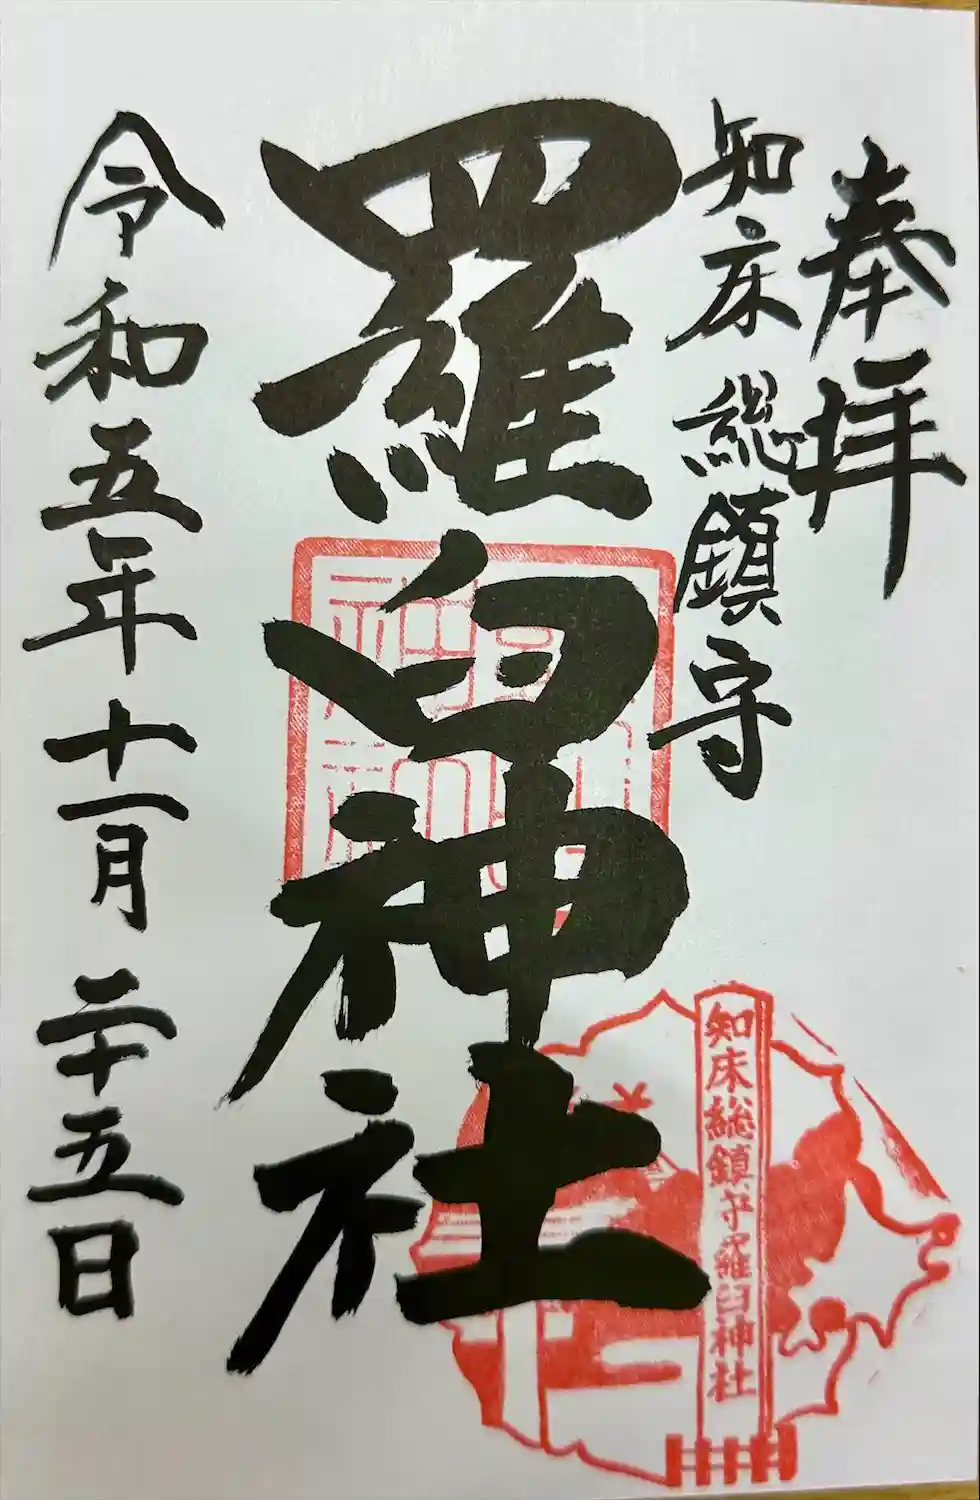 奉拝
知床総鎮守
羅臼神社
令和五年十一月二十五日
知床総鎮守羅臼神社